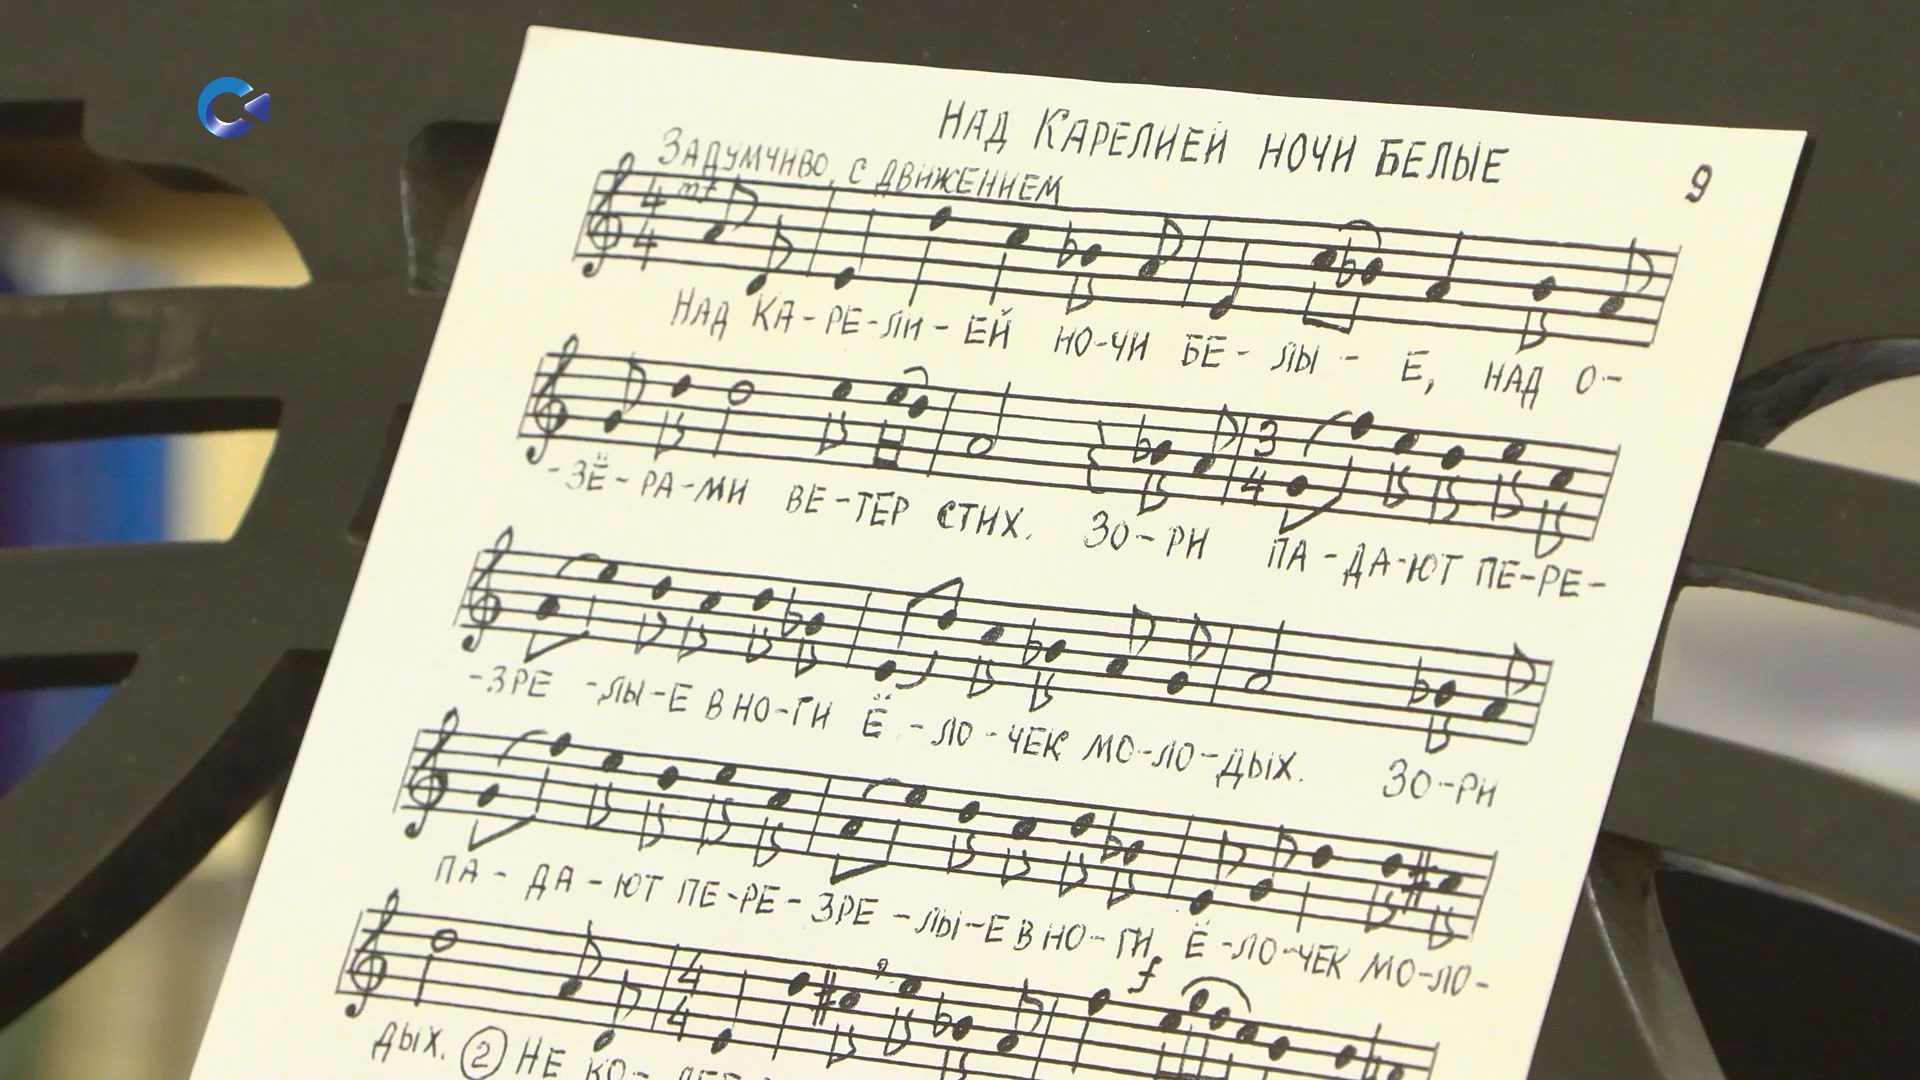 НАД КАРЕЛИЕЙ НОЧИ БЕЛЫЕ
9
ЗАДУМЧИВО, С ДВИЖЕНИЕМ
4 4 mf
НАД КА-РЕ-ЛИ-ЕЙ НО-ЧИ БЕ-ЛЫ-Е, НАД О-
3 4
-ЗЁ-РА-МИ ВЕ-ТЕР СТИХ. ЗО-РИ ПА-ДА-ЮТ ПЕ-РЕ-
-ЗРЕ-ЛЫ-Е В НО-ГИ Ё-ЛО-ЧЕК МО-ЛО-ДЫХ. ЗО-РИ
ПА-ДА-ЮТ ПЕ-РЕ-ЗРЕ-ЛЫ-Е В НО-ГИ, Ё-ЛО-ЧЕК МО-ЛО-
4 4 f
ДЫХ. 2 НЕ КО-